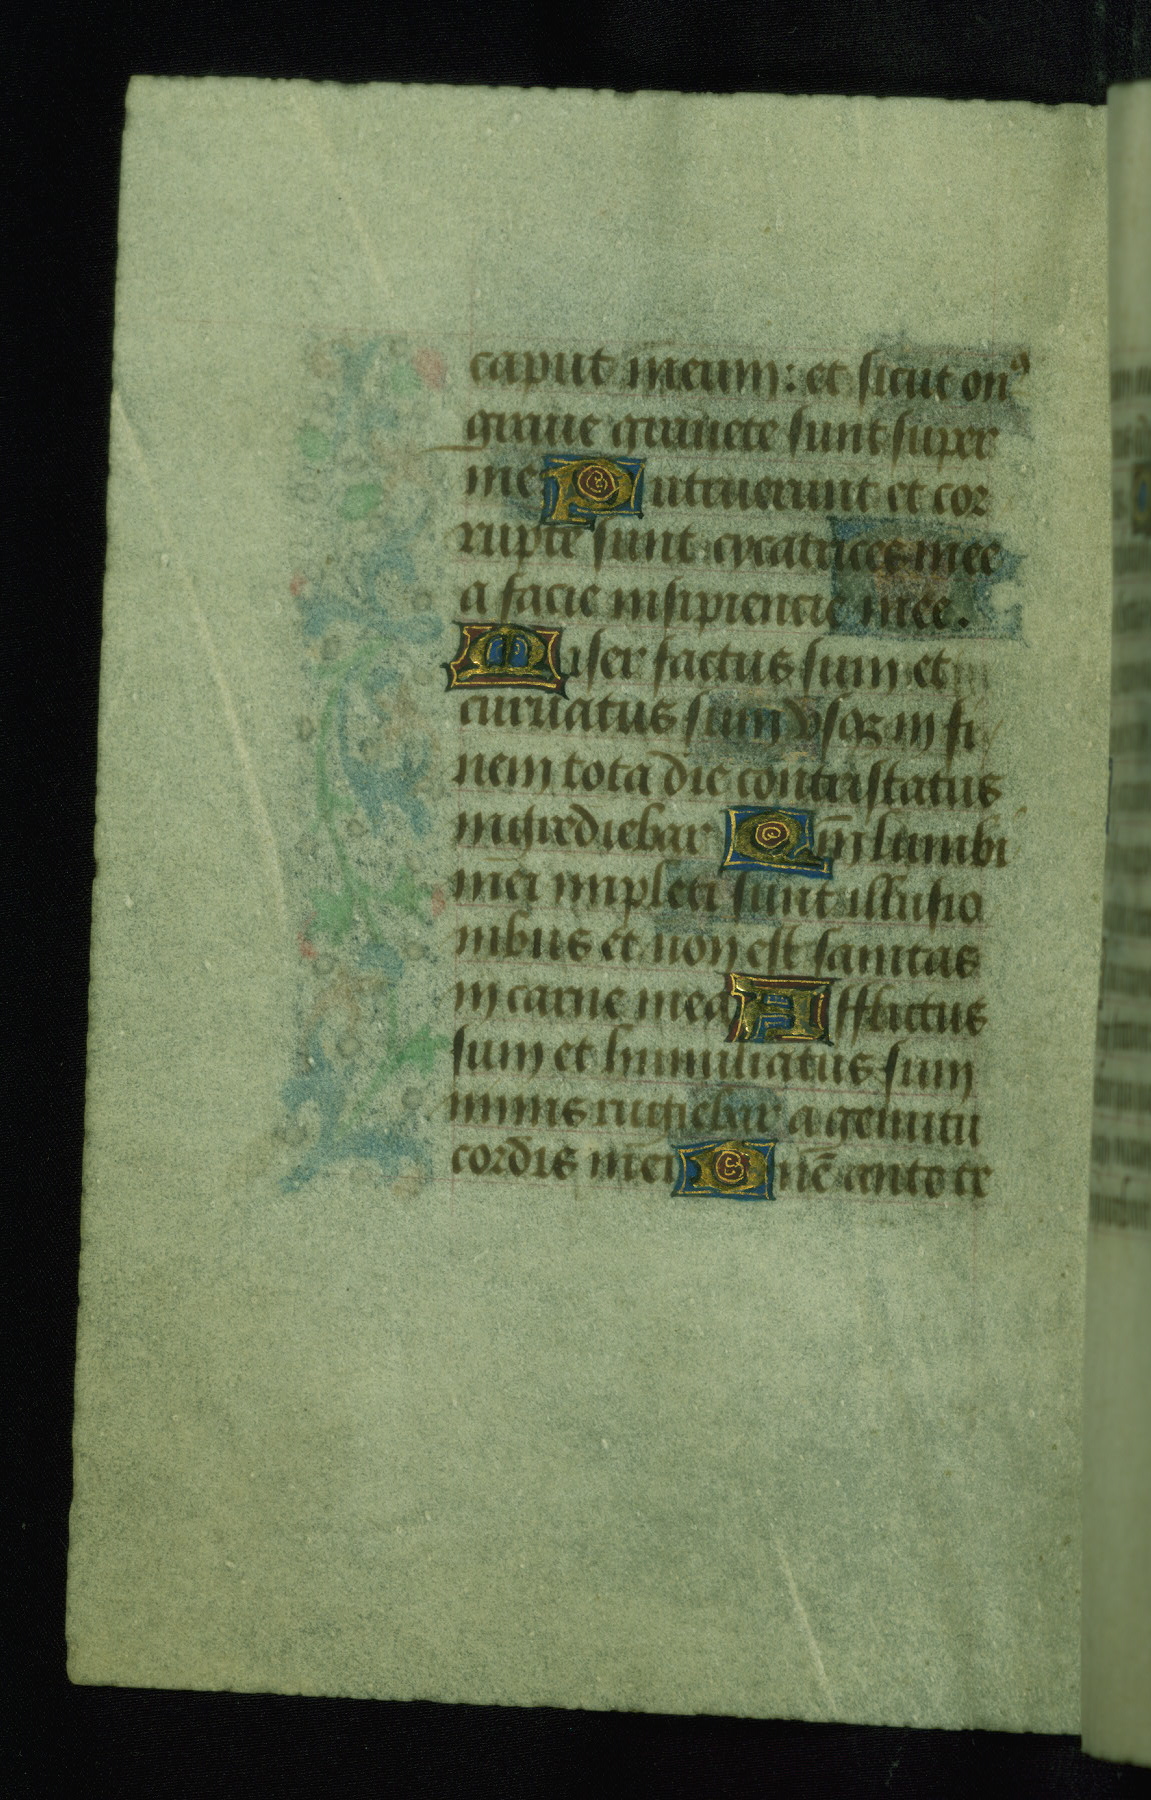 caput meum: et sicut onꝰ
graue grauate sunt super
me Putruerunt et cor
rupte sunt cycatrices mee
a facie insipiencie mee.
Miser factus sum et
curuatus sum vsqꝫ in fi
nem tota die contristatus
ingrediebar Qm̄ lumbi
mei impleti sunt illusio
nibus et non est sanitas
in carne mea Afflictus
sum et humiliatus sum
nimis rugiebar a gemitu
cordis mei Dn̄e ante te